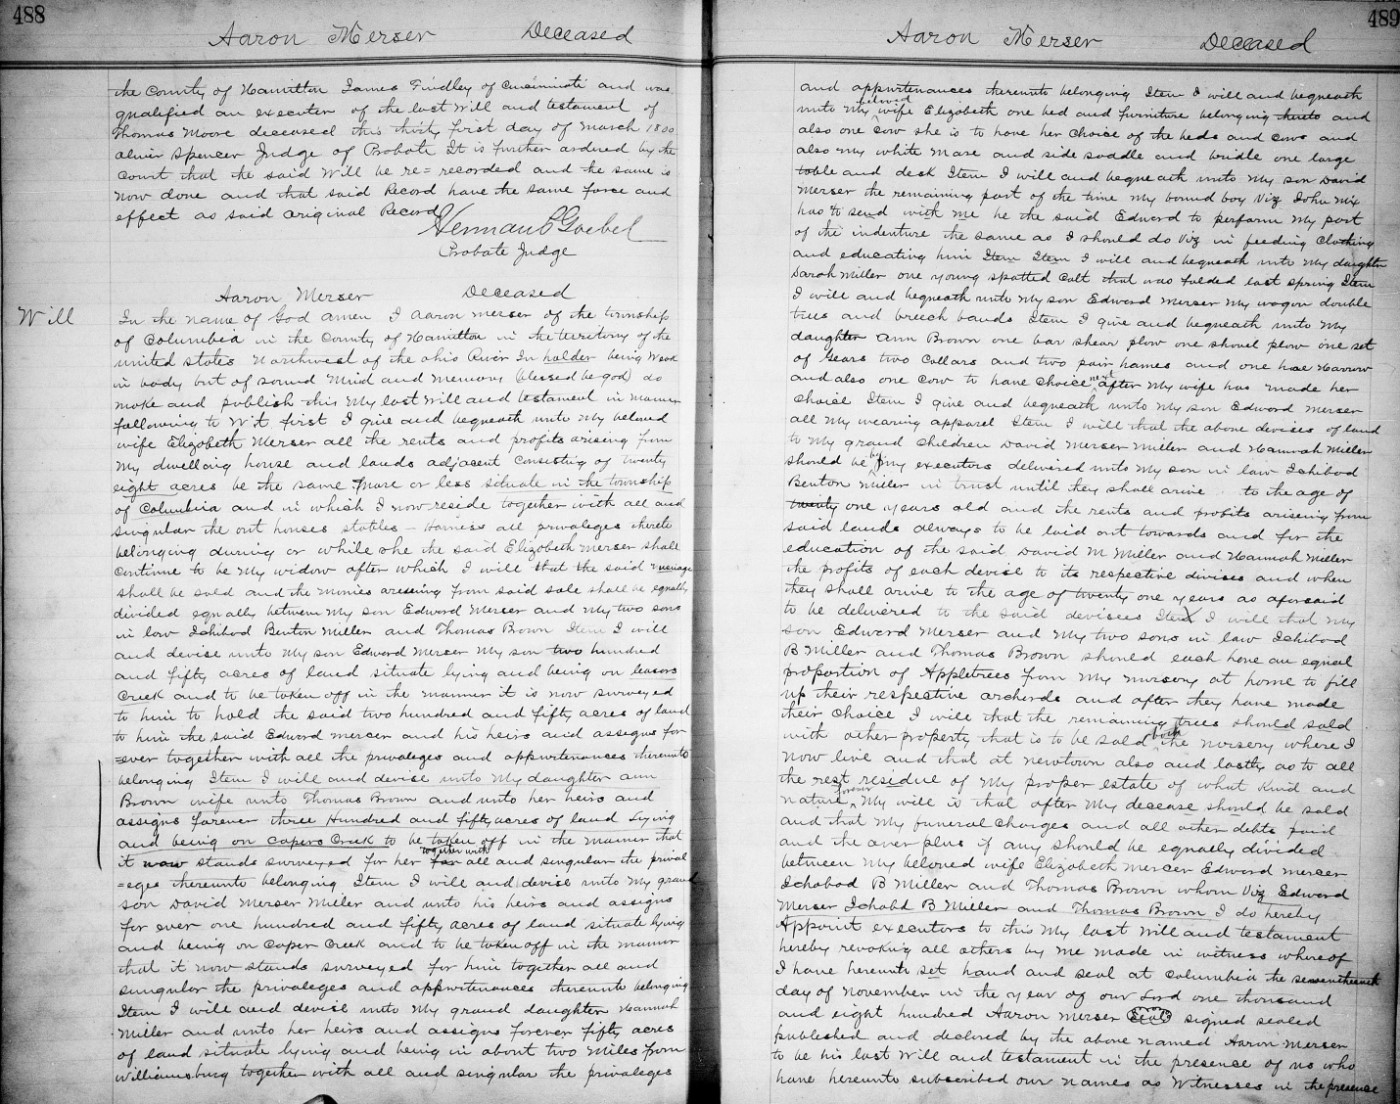 488
Aaron Merser Deceased
the County of Hamilton James Findley of Cincinnati and was
qualified an executer of the last Will and testament of
Thomas Moore deceased this thirty first day of March 1800
Oliver Spencer Judge of Probate It is further ordered by the
Court that the said Will be re=recorded and the same is
now done and that said Record have the same force and
effect as said original Record
Herman P Goebel
Probate Judge
Aaron Merser Deceased
Will
In the name of God amen I Aaron Merser of the township
of Columbia in the County of Hamilton in the territory of the
united states Northwest of the ohio River In holder being Weak
in body but of sound Mind and memory (blessed be god) do
make and publish this My last Will and testament in manner
following to Wit first I give and bequeath unto My beloved
wife Elizabeth Merser all the rents and profits arising from
My dwelling house and lands adjacent Consisting of twenty
eight acres be the same More or less situate in the township
of Columbia and in which I now reside together with all and
singular the out houses stables all privaleges thereto
belonging during or while she the said Elizabeth Merser shall
Continue to be My widow after which I will that the said
shall be sold and the Monies areising from said sale shall be equally
divided equally between My son Edward Merser and My two sons
in low Ichibod Benton Miller and Thomas Brown Item I will
and devise unto My son Edward Merser My son two hundred
and fifty acres of land situate lying and being on
Creek and to be taken off in the manner it is now surveyed
to him to hold the said two hundred and fifty acres of land
to him the said Edward Mercer and his heirs and assigns for
=ever together with all the privaleges and appurtenances thereunto
belonging Item I will and devise unto My daughter ann
Brown wife unto Thomas Brown and unto her heirs and
assigns forever three Hundred and fifty acres of land Lying
and being on Capers Creek to be taken off in the manner that
it now stands surveyed for her together with for all and singular the prival
=eges thereunto belonging Item I will and devise unto My grand
son David Merser Miller and unto his heirs and assigns
for ever one hundred and fifty acres of land situate lying
and being on Caper Creek and to be taken off in the manner
that it now stands surveyed for him together all and
singular the privaleges and appurtenances thereunto belonging
Item I will and devise unto My grand daughter Hannah
Miller and unto her heirs and assigns forever fifty acres
of land situate lying and being in about two Miles from
Williamsburg together with all and singular the privaleges
489
Aaron Merser Deceased
and appurtenances thereunto belonging Item I will and bequeath
unto My beloved wife Elizabeth one bed and furniture belonging thereto and
also one Cow she is to have her Choice of the beds and Cows and
also My white Mare and side saddle and bridle one large
table and desk Item I will and bequeath unto My son David
Merser the remaining part of the time My bound boy Viz John Mix
has to send with me he the said Edward to perform My part
of the indenture the same as I should do Viz in feeding Clothing
and educating him Item Item I will and bequeath unto My daughter
Sarah Miller one young spotted Colt that was folded last spring Item
I will and bequeath unto My son Edward Merser My wagon double
trees and breech bands Item I give and bequeath unto My
daughter Ann Brown one bar shear plow one shovel plow one set
of Gears two Collars and two pair hames and one hoe Harrow
and also one Cow to have Choice next after My wife has made her
Choice Item I give and bequeath unto My son Edward Merser
all My wearing apparel Item I will that the above devises of land
to My grand Children David Merser Miller and Hannah Miller
should be by My executors delivered unto My son in law Ichibod
Benton Miller in trust until they shall arive to the age of
twenty one years old and the rents and profits arising from
said lands always to be laid out towards and for the
education of the said David M Miller and Hannah Miller
the profits of each devise to its respective divises and when
they shall arive to the age of twenty one years as aforsaid
to be delivered to the said devisees Item I will that My
son Edward Merser and My two sons in law Ichibod
B Miller and Thomas Brown should each have an equal
proportion of Appletrees from My nursery at home to fill
up their respective orchirds and after they have made
their Choice I will that the remaining trees should sold
with other property that is to be sold both the nursery where I
now live and that at newtown also and lastly as to all
the rest residue of My proper estate of what Kind and
nature forever My will is that after My decease should be sold
and that My funeral Charges and all other debts paid
and the over plus if any should be equally divided
between My beloved wife Elizabeth Mercer Edward Merser
Ichabod B Miller and Thomas Brown whom Viz Edward
Merser Ichabd B Miller and Thomas Brown I do hereby
Appoint executors to this My last Will and testament
hereby revoking all others by me made in witness whereof
I have hereunto set hand and seal at Columbia the seventeenth
day of November in the year of our Lord one thousand
and eight hundred Aaron Merser Seal signed sealed
published and declared by the above named Aaron Merser
to be his last Will and testament in the presence of us who
have hereunto subscribed our names as Witnesses in the presence